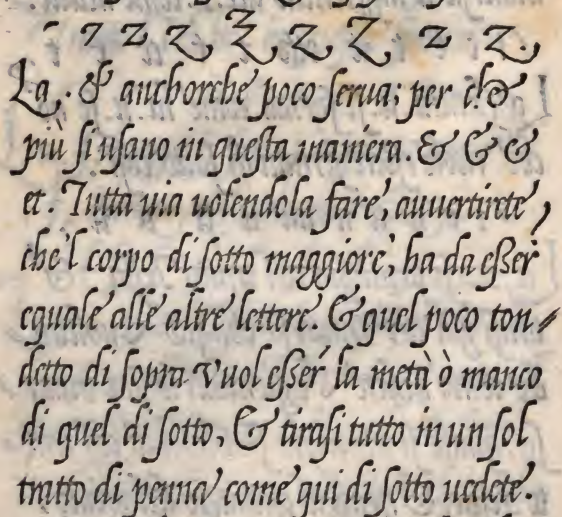 - 7 z z z z z z z
La. & anchorche poco serua; per che
più si usano in questa maniera. & & &
et. Tutta uia uolendola fare, auuertirete,
che'l corpo di sotto maggiore, ha da esser
equale alle altre lettere. & quel poco ton=
detto di sopra vuol esser la metà ò manco
di quel di sotto, & tirasi tutto in un sol
tratto di penna come qui di sotto uedete.